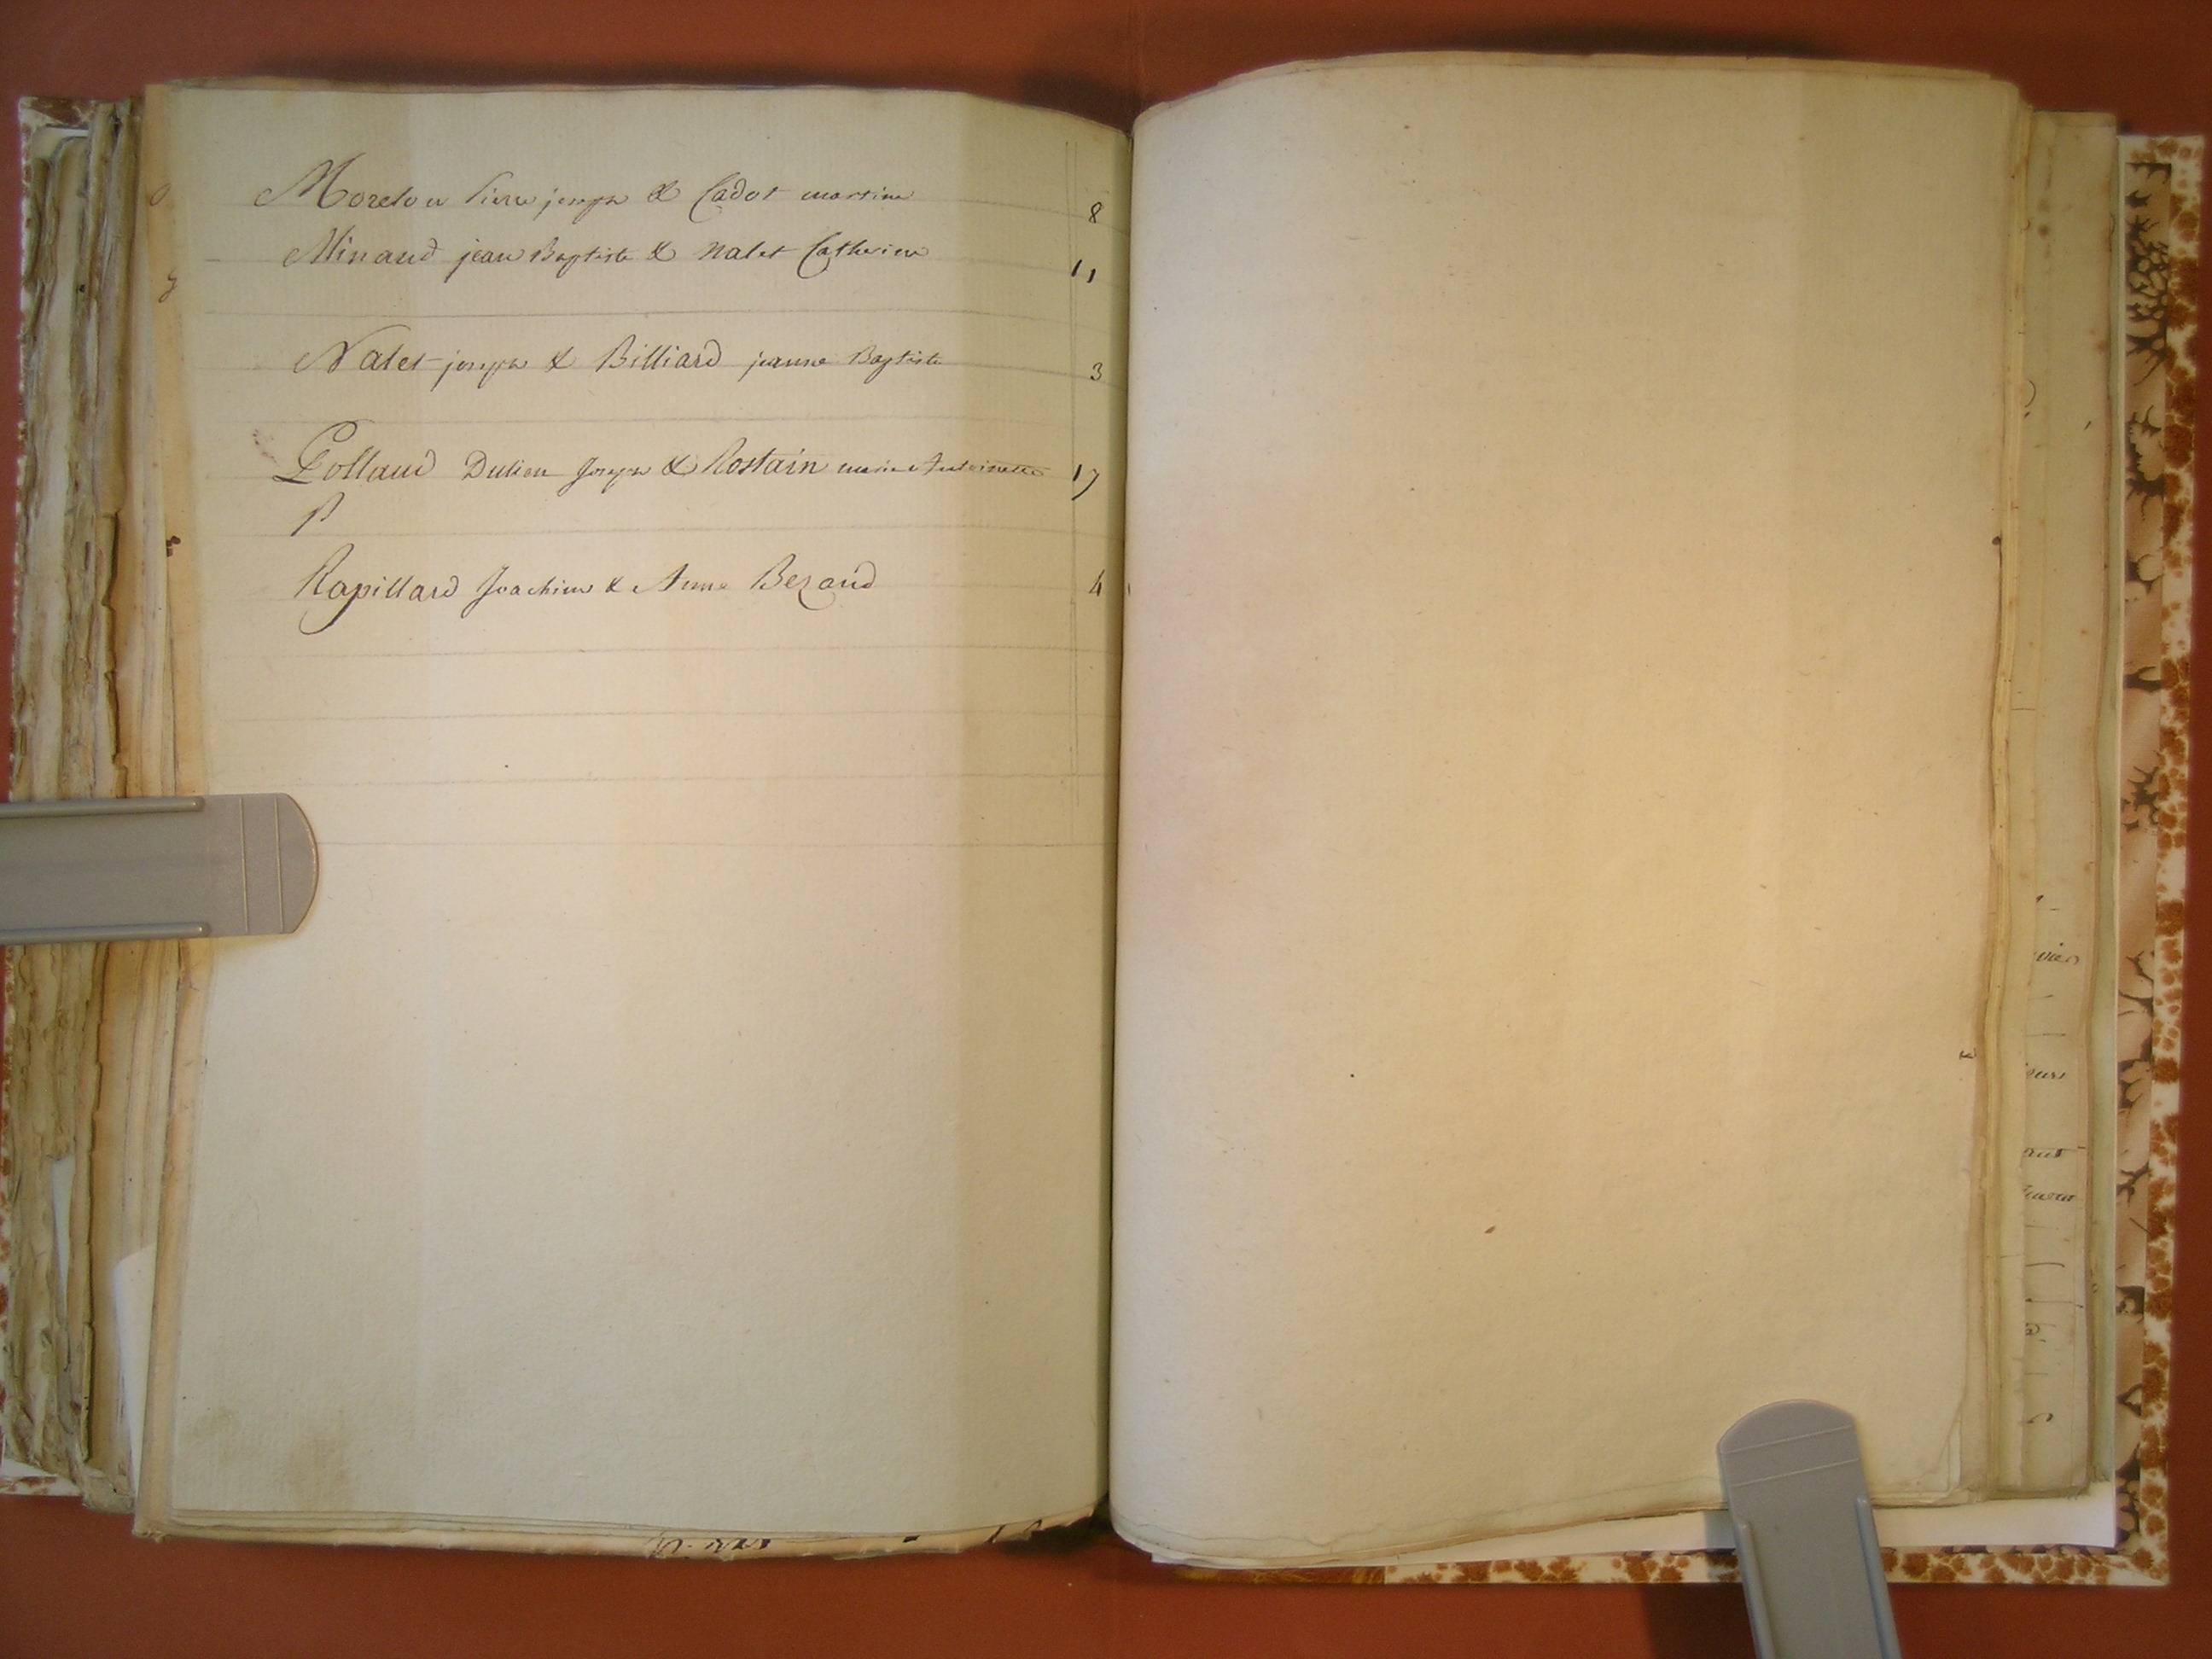 Moreton Pierre joseph & Cadot martine 8
Minaud jean Baptiste & Nalet Catherine 11
Nalet joseph & Billiard jeanne Baptiste 3
Pollaud Dulian Joseph & Rostain marie Antoinette 17
P
Rapillard Joachim & Anne Bezaud 4